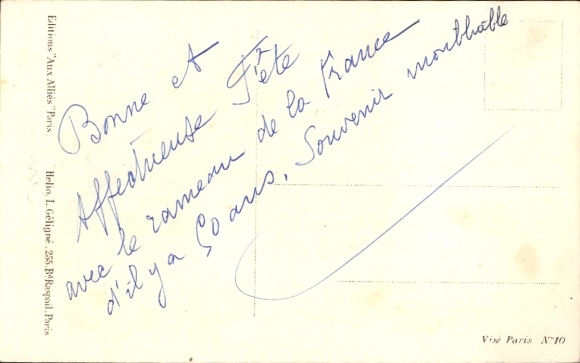 Bonne et
Affectueuse Fête
avec le rameau de la France
d'il y a 50 ans. Souvenir inoubliable
Editions "Aux Alliés" Paris
Helio. L. Géligné. 255. Bd Raspail. Paris
Visé Paris N° 10